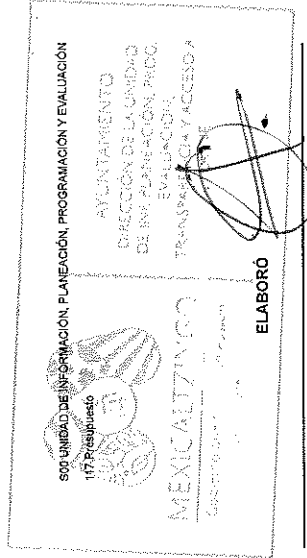 S00 UNIDAD DE INFORMACIÓN, PLANEACIÓN, PROGRAMACIÓN Y EVALUACIÓN
117 Presupuesto
AYUNTAMIENTO
DIRECCIÓN DE LA UNIDAD
DE INF. PLANEACIÓN, PROG.
EVALUACIÓN,
TRANSPARENCIA Y ACCESO A
MEXICALTZINGO
ELABORÓ